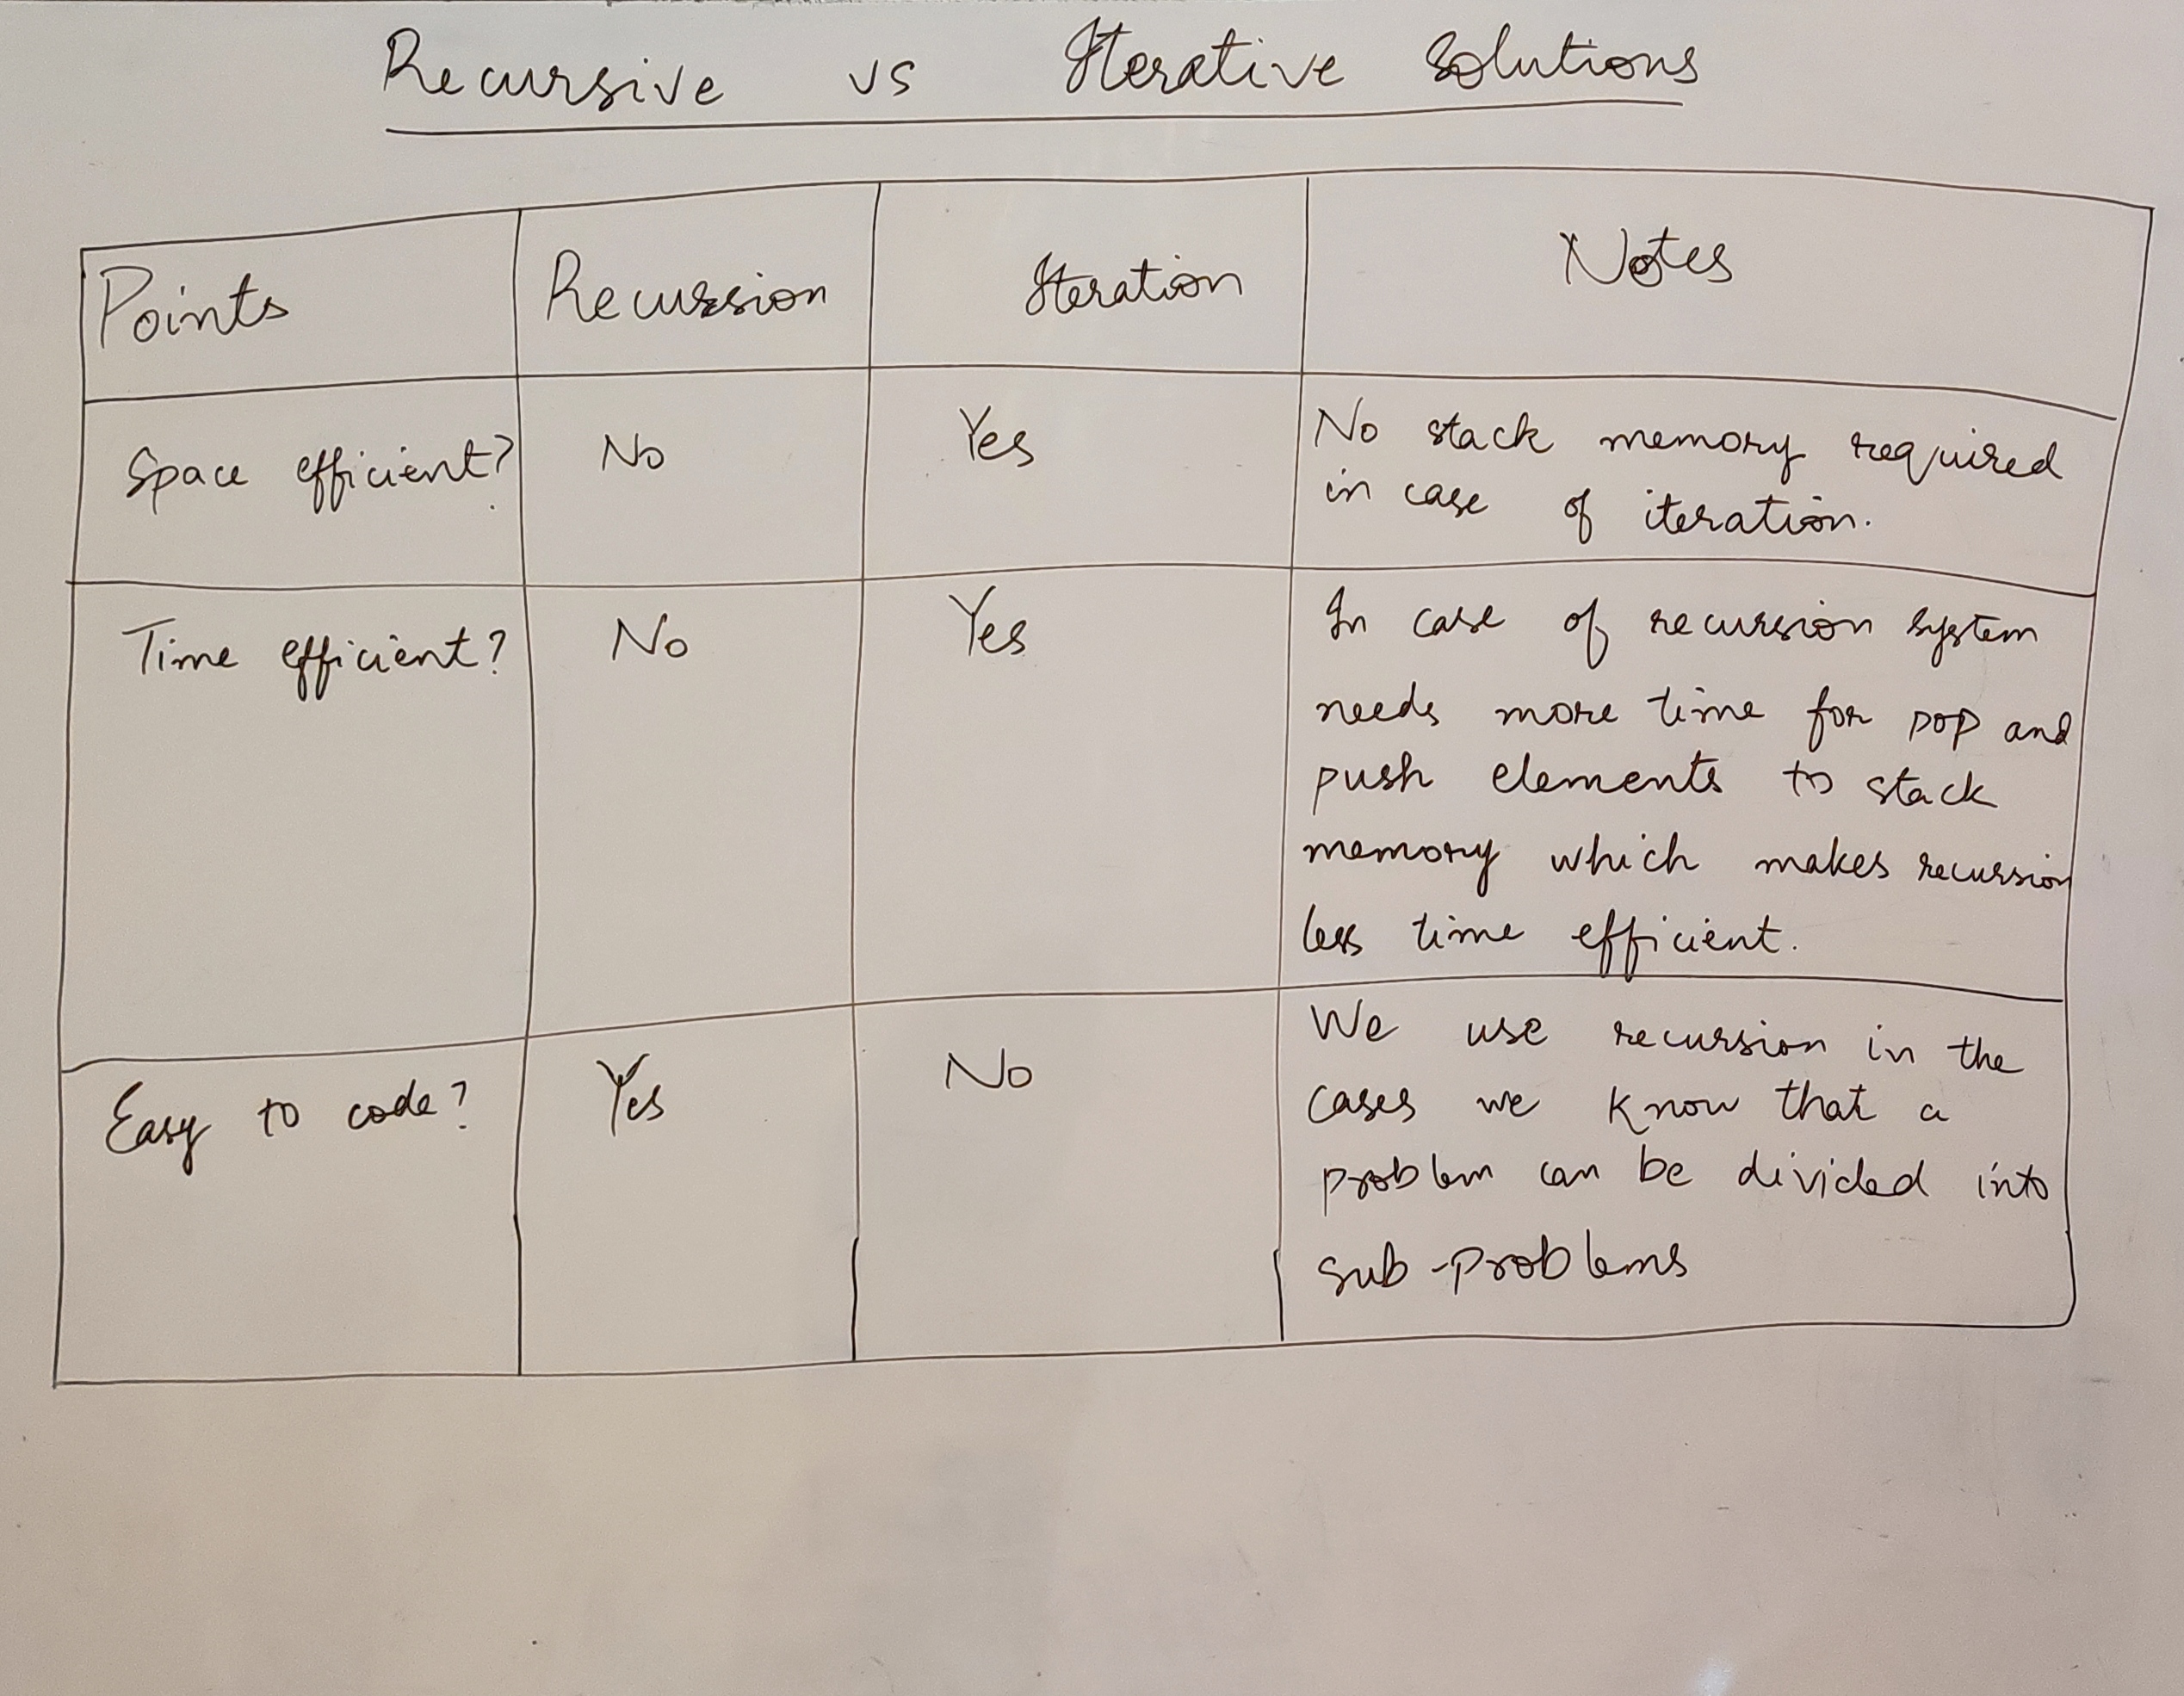 Recursive vs Iterative Solutions
Points Recursion Iteration Notes
Space efficient? No Yes No stack memory required
in case of iteration.
Time efficient? No Yes In case of recursion system
needs more time for pop and
push elements to stack
memory which makes recursion
less time efficient.
Easy to code? Yes No We use recursion in the
cases we know that a
problem can be divided into
sub-problems